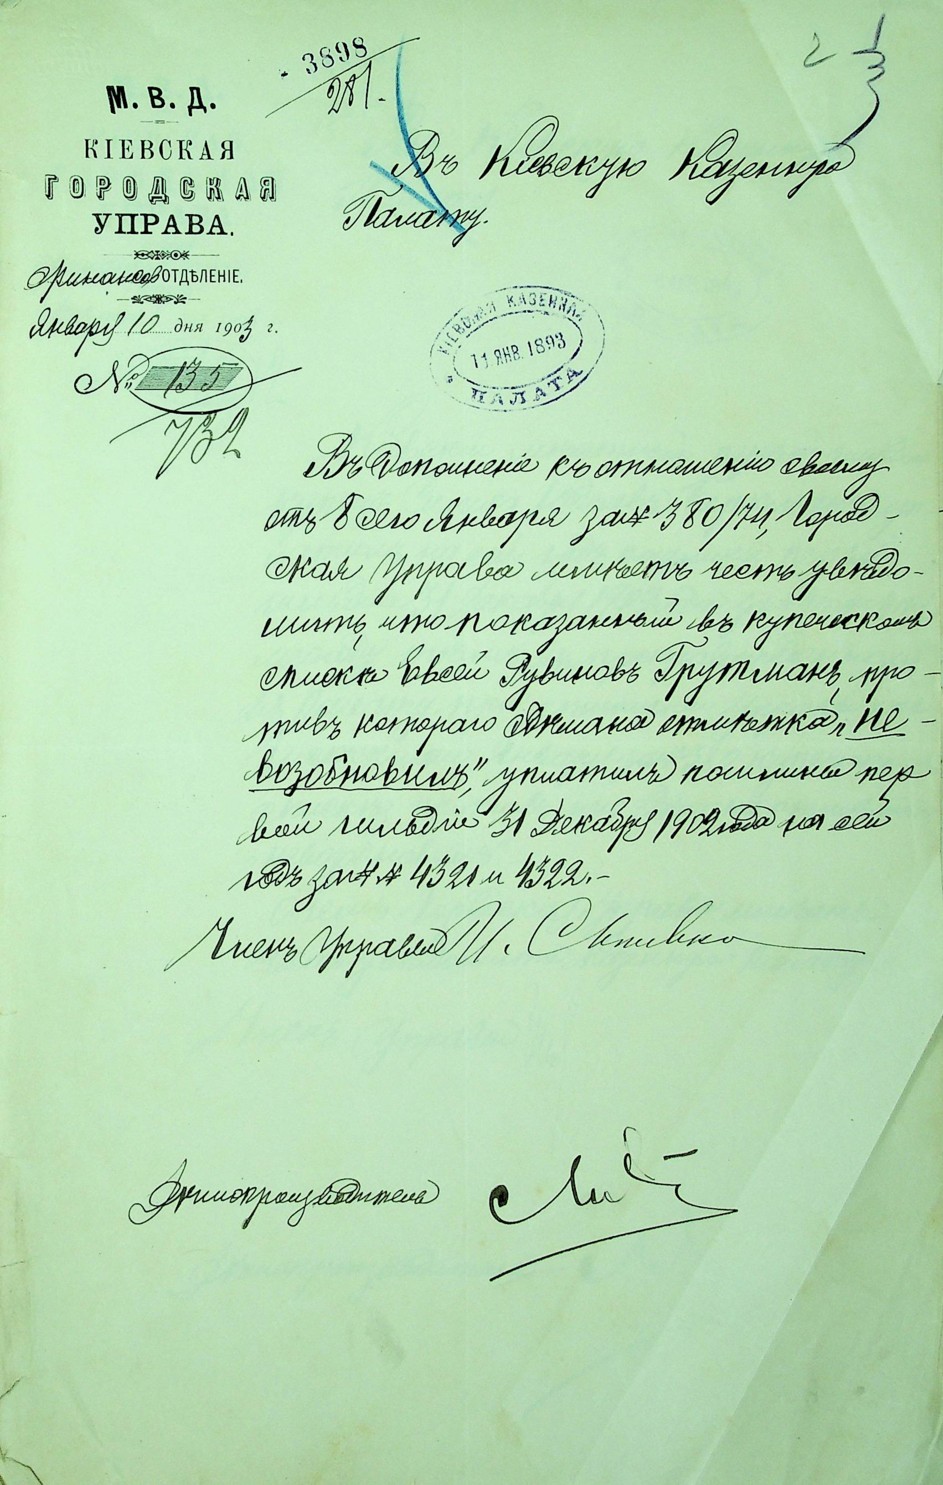 3898
281.
М. В. Д.
КІЕВСКАЯ
ГОРОДСКАЯ
УПРАВА.
Финансов ОТДѢЛЕНІЕ.
Января 10 дня 1903 г.
№ 135
732
Въ Кіевскую Казенную
Палату.
КІЕВСКАЯ КАЗЕННАЯ
11 ЯНВ. 1893
ПАЛАТА
Въ дополненіе къ отношенію своему
отъ 8 сего Января за № 380/74, Город-
ская Управа имѣетъ честь увѣдо-
мить, что показанный въ купеческомъ
списке Евсей Рувиновъ Грутманъ, про-
тивъ котораго сдѣлана отмѣтка „не-
возобновилъ", уплатилъ пошлины пер
вой гильдіи 31 Декабря 1902 года на сей
годъ за №№ 4321 и 4322.-
Членъ Управы И.
Дѣлопроизводитель